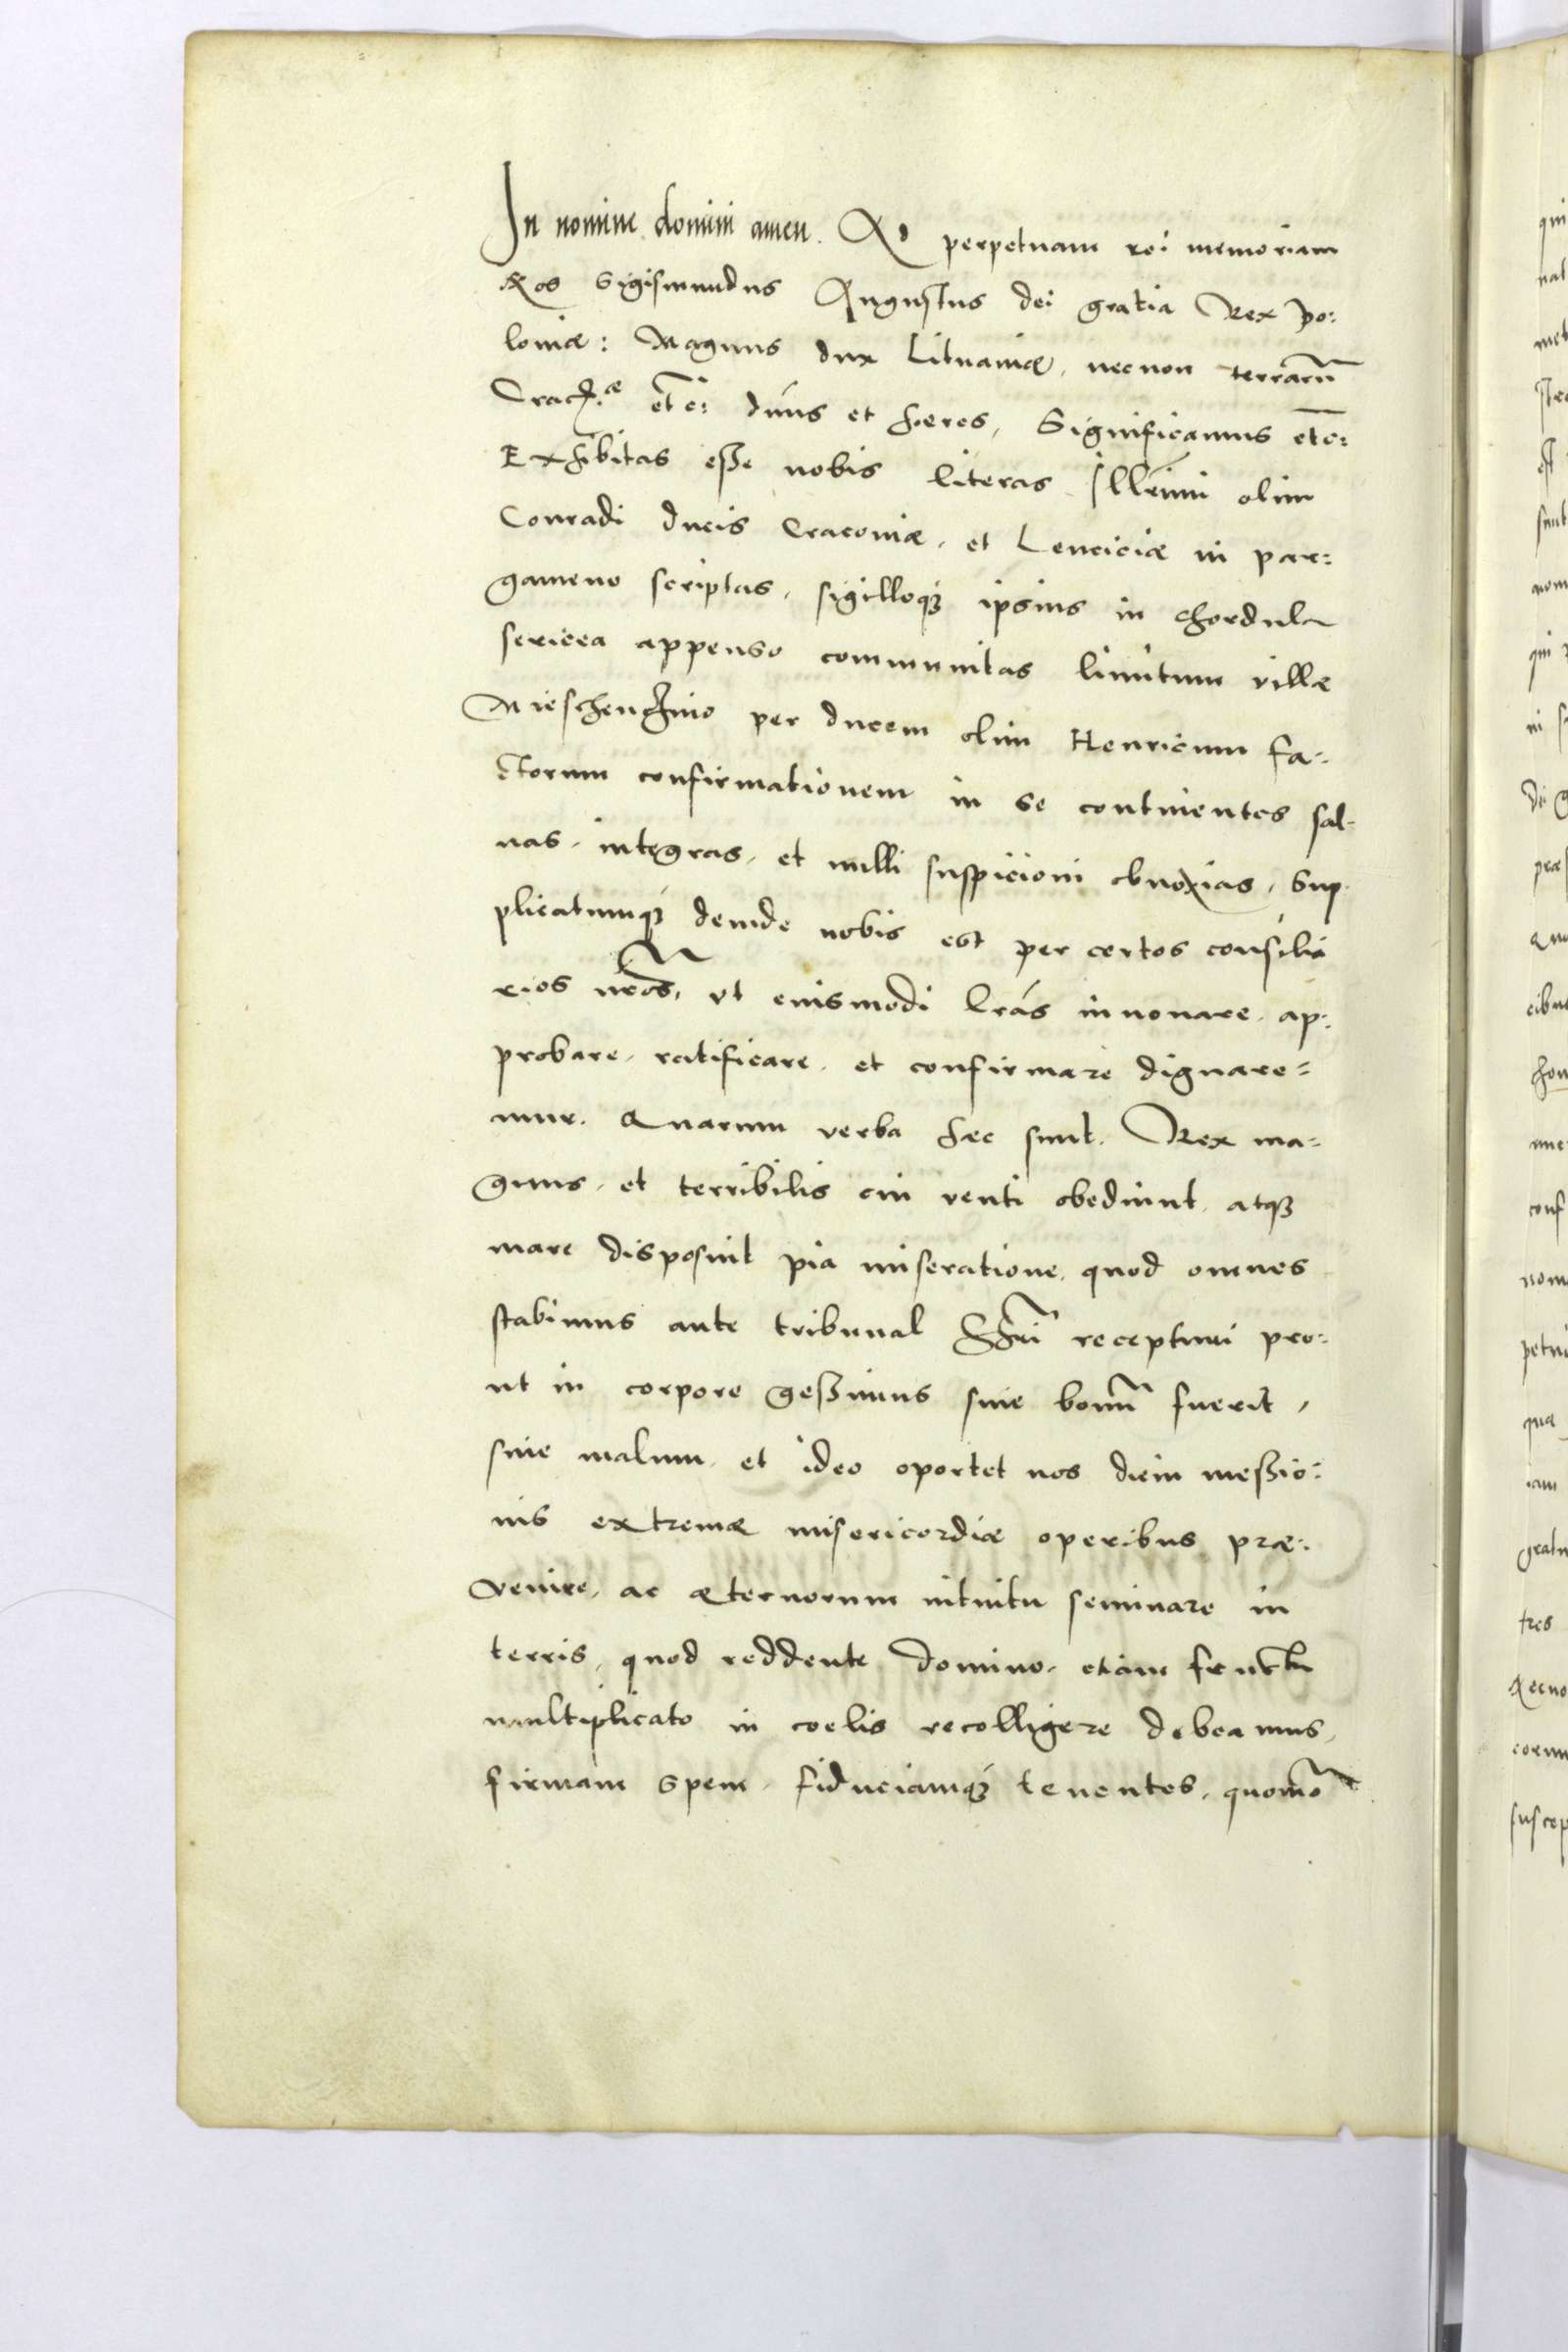 In nomine domini amen. Ad perpetuam rei memoriam
Nos Sigismundus Augustus dei gratia Rex Po:
loniæ: Magnus dux Lituaniæ, necnon terrarū
Crac:æ etc: dn̄us et heres, Significamus etc:
Exhibitas esse nobis literas Illr̄imi olim
Conradi ducis Cracoviæ, et Lenciciæ in par:
gameno scriptas, sigilloq; ipsius in chordula
sericea appenso communitas limitum villæ
per ducem olim Henricum fa:
ctorum confirmationem in se continentes sal:
uas, integras, et nulli suspicioni obnoxias, Sup:
plicatumq; deinde nobis est per certos consilia
rios nr̄os, vt eiusmodi lrās innouare, ap:
probare, ratificare, et confirmare dignare=
mur. Quarum verba hæc sunt. Rex ma=
gnus, et terribilis cui venti obediunt, atq;
mare disposuit pia miseratione, quod omnes
stabimus ante tribunal Chr̄i recepturi pro:
ut in corpore gessimus siue bonū fuerit,
siue malum, et ideo oportet nos diem messio:
nis extremæ misericordiæ operibus præ:
venire, ac æternorum intuitu seminare in
terris, quod reddente Domino, etiam fructu
multiplicato in coelis recolligere debeamus,
firmam spem, fiduciamq; tenentes, quom̄o